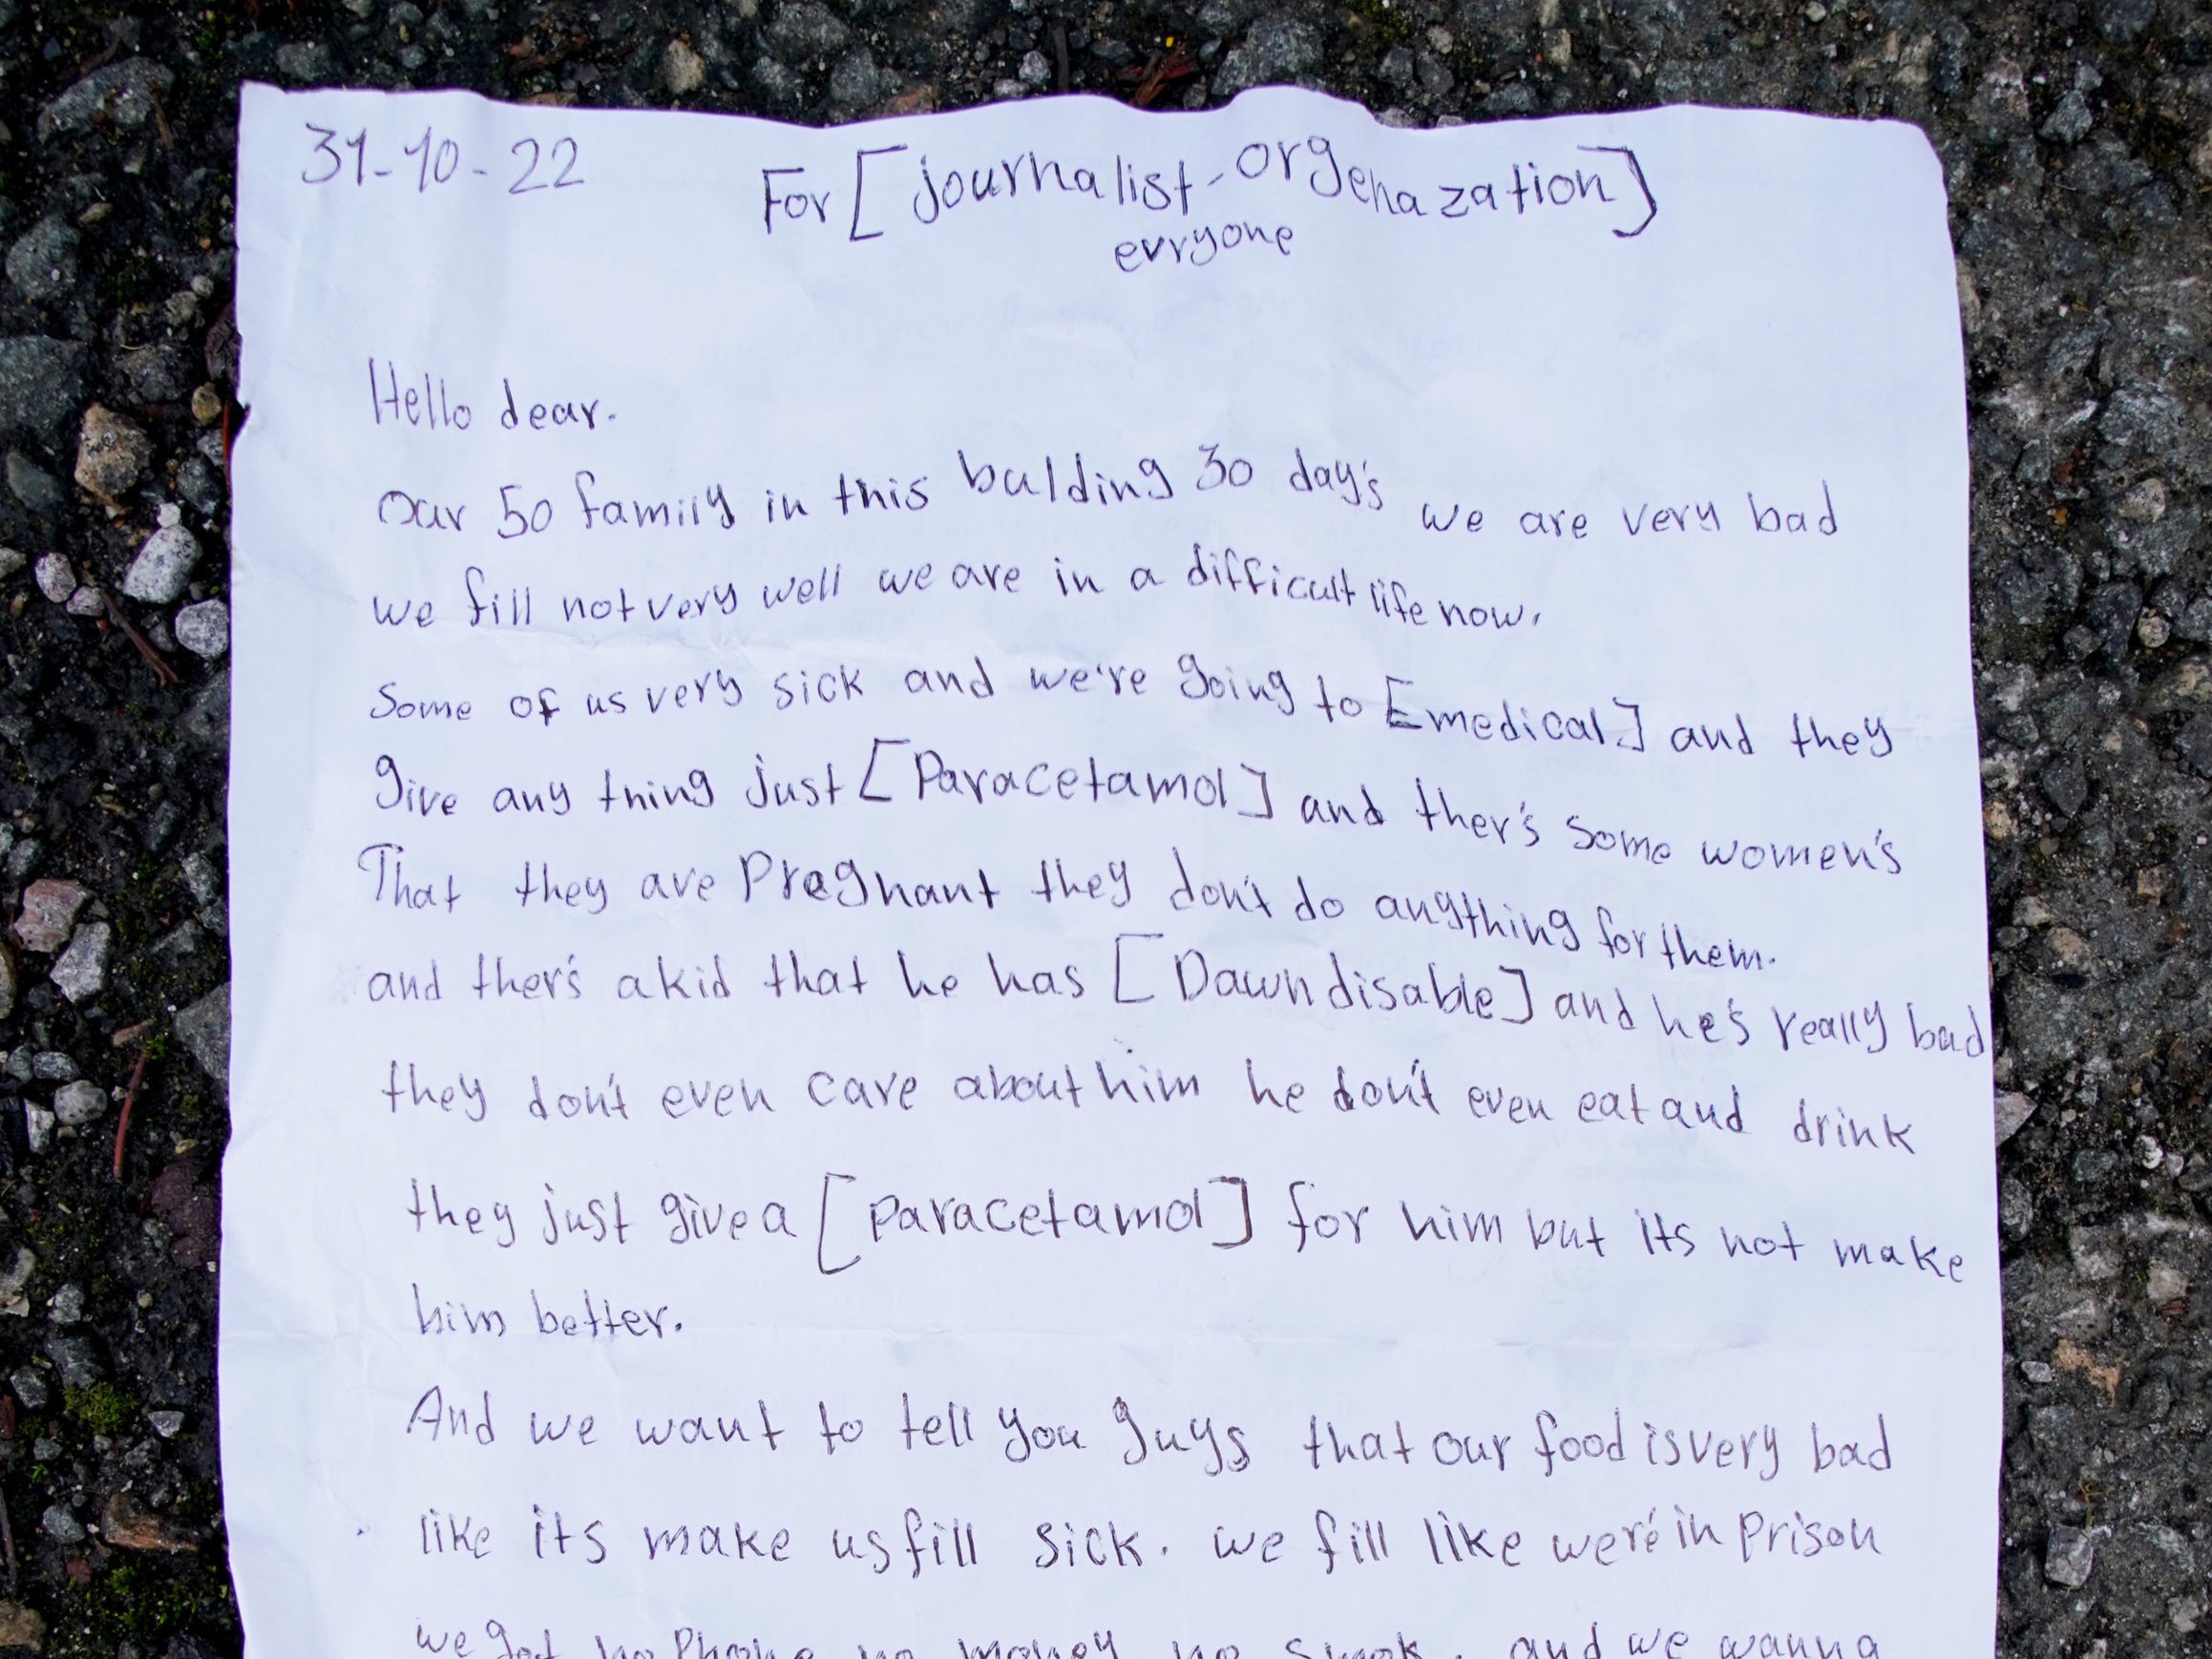 31-10-22
For [journalist - orgenazation]
evryone
Hello dear.
Our 50 family in this bulding 30 day's we are very bad
we fill not very well we are in a difficult life now.
Some of us very sick and we're going to [medical] and they
give any thing just [Paracetamol] and ther's some women's
That they are Pregnant they don't do anything for them.
and ther's a kid that he has [Dawn disable] and he's really bad
they don't even care about him he don't even eat and drink
they just give a [Paracetamol] for him but its not make
him better.
And we want to tell you guys that our food is very bad
like its make us fill sick. we fill like we're in Prison
we got no Phone no money no smok. and we wanna